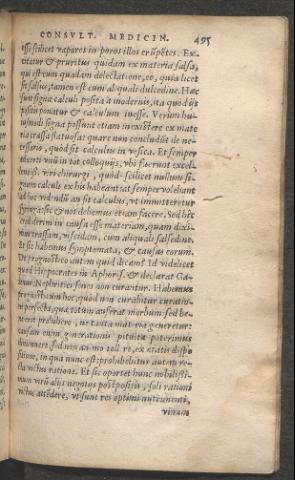 CONSVLT. MEDICIN. 495
esse scilicet vapores in poros illos erūpētes. Ex-
citatur & pruritus quidam ex materia salsa,
qui est cum quadam delectatione, eo, quia licet
sit salsus, tamen est cum aliquali dulcedine. Hæc
sunt signa calculi posita à modernis, ita quòd ijs
positis ponatur & calculum inesse. Verùm huius-
modi signa possunt etiam inexistere ex mate
ria crassa & flatuosa: quare non concludūt de ne-
cessario, quòd sit calculus in vesica. Et semper
memini in tot colloquijs, vbi fuerunt excel-
lentiss. viri chirurgi, quòd scilicet nullum si-
gnum calculi ex his habeant: at semper volebant
ad hoc videndū an sit calculus, vt immitteretur
syringa: sic & nos debemus etiam facere. Sed hîc
crederim in causa esse materiam, quam dixi-
mus crassam, viscidam, cum aliquali salsedine.
Et sic habemus symptomata, & causas eorum.
De prognostico autem quid dicam? Id videlicet
quod Hippocrates in Aphoris. & declarat Ga-
lenus: Nephritici senes non curantur. Habemus
prognosticum hoc, quòd non curabitur curatio-
ne perfecta, quæ totum auferat morbum: sed be-
ne generetur:
causam enim generationis pituitæ paterimus
diminuere, sed non omnino tollere, ex ætatis dispo
sitione, in qua nunc est: prohibebitur autem re-
cta victus ratione. Et sic oportet hunc nobilissi-
mum virū alijs negotijs postpositis, soli rationi
victus attēdere, vt sunt res optimi nutrimenti,
vinum